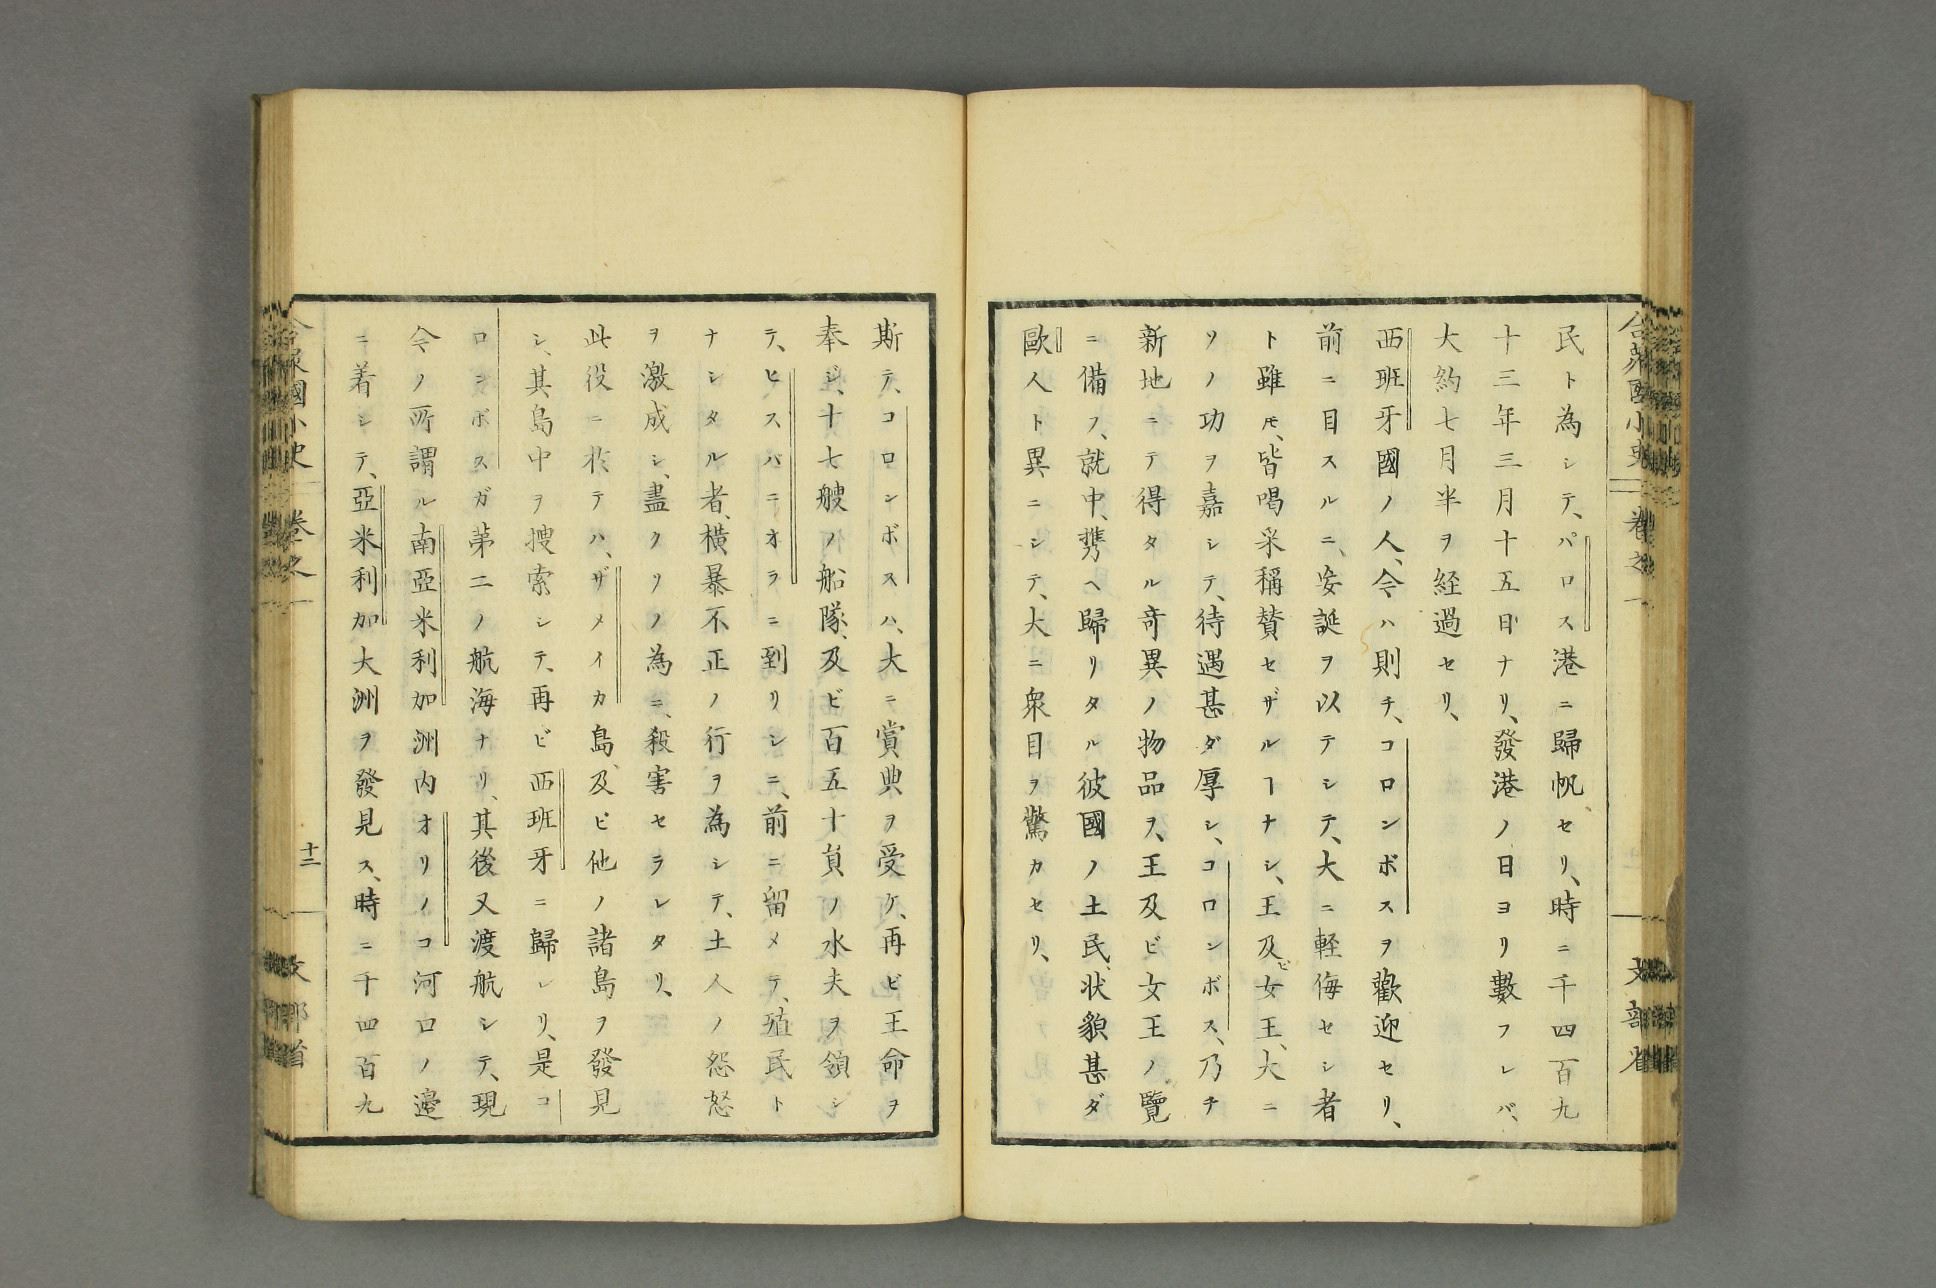 合衆國小史 卷之一
文部省
民ト為シテ、パロス港ニ歸帆セリ、時ニ千四百九
十三年三月十五日ナリ、發港ノ日ヨリ數フレバ、
大約七月半ヲ経過セリ、
西班牙國ノ人、今ハ則チ、コロンボスヲ歡迎セリ、
前ニ目スルニ、妄誕ヲ以テシテ、大ニ軽侮セシ者
ト雖モ、皆喝采稱賛セザルヿナシ、王及ビ女王、大ニ
ソノ功ヲ嘉シテ、待遇甚ダ厚シ、コロンボス、乃チ
新地ニテ得タル奇異ノ物品ヲ、王及ビ女王ノ覽
ニ備フ、就中、携ヘ歸リタル彼國ノ土民、状貌甚ダ
歐人ト異ニシテ、大ニ衆目ヲ驚カセリ、
斯テ、コロンボスハ、大ニ賞典ヲ受ケ、再ビ王命ヲ
奉ジ、十七艘ノ船隊、及ビ百五十員ノ水夫ヲ領シ
テ、ヒスパニオラニ到リシニ、前ニ留メテ、殖民ト
ナシタル者、横暴不正ノ行ヲ為シテ、土人ノ怨怒
ヲ激成シ、盡クソノ為ニ、殺害セラレタリ、
此役ニ於テハ、ザメイカ島、及ビ他ノ諸島ヲ發見
シ、其島中ヲ搜索シテ、再ビ西班牙ニ歸レリ、是コ
ロンボスガ第二ノ航海ナリ、其後又渡航シテ、現
今ノ所謂ル南亞米利加洲内オリノコ河口ノ邉
ニ着シテ、亞米利加大洲ヲ發見ス、時ニ千四百九
合衆國小史 卷之一
十二
文部省